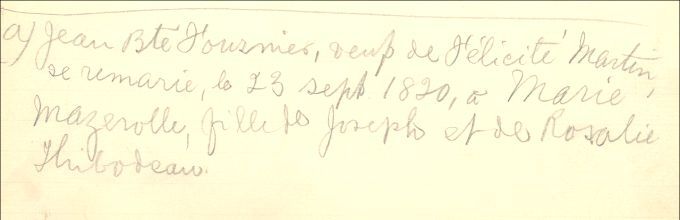 a) Jean Bte Fournier, veuf de Félicité Martin,
se remarie, le 23 sept 1820, à Marie
Mazerolle, fille de Joseph et de Rosalie
Thibodeau.